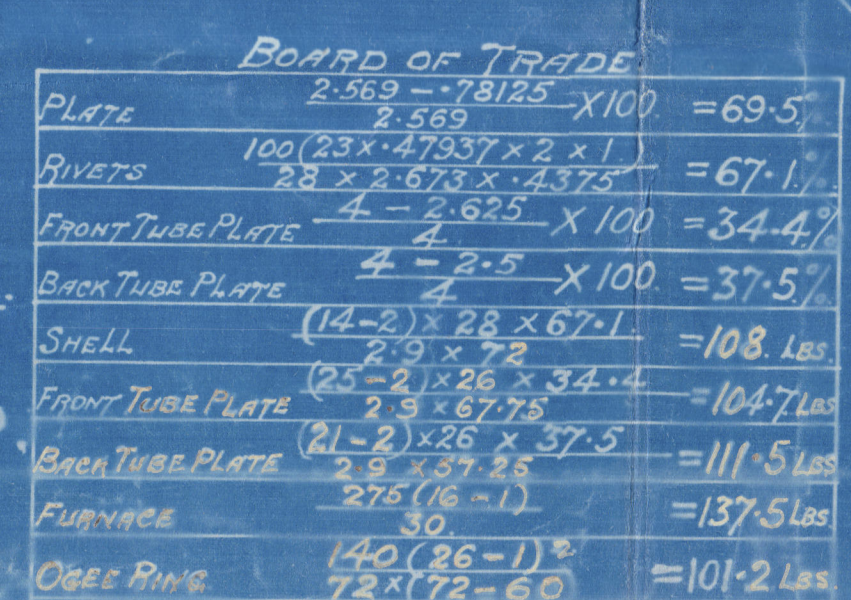 BOARD OF TRADE
PLATE (2·569 – ·78125) / 2·569 × 100. = 69·5.%
RIVETS 100(23 × ·47937 × 2 × 1.) / 28 × 2·673 × ·4375 = 67·1.%
FRONT TUBE PLATE 4 – 2·625 / 4 × 100 = 34·4%
BACK TUBE PLATE 4 – 2·5 / 4 × 100. = 37·5.%
SHELL (14–2) × 28 × 67·1. / 2·9 × 72 = 108. LBS.
FRONT TUBE PLATE (25–2) × 26 × 34·4 / 2·9 × 67·75 = 104·7 LBS
BACK TUBE PLATE (21–2) × 26 × 37·5 / 2·9 × 57·25 = 111·5 LBS
FURNACE 275(16–1) / 30. = 137·5 LBS.
OGEE RING 140(26–1)² / 72 × (72–60 = 101·2 LBS.